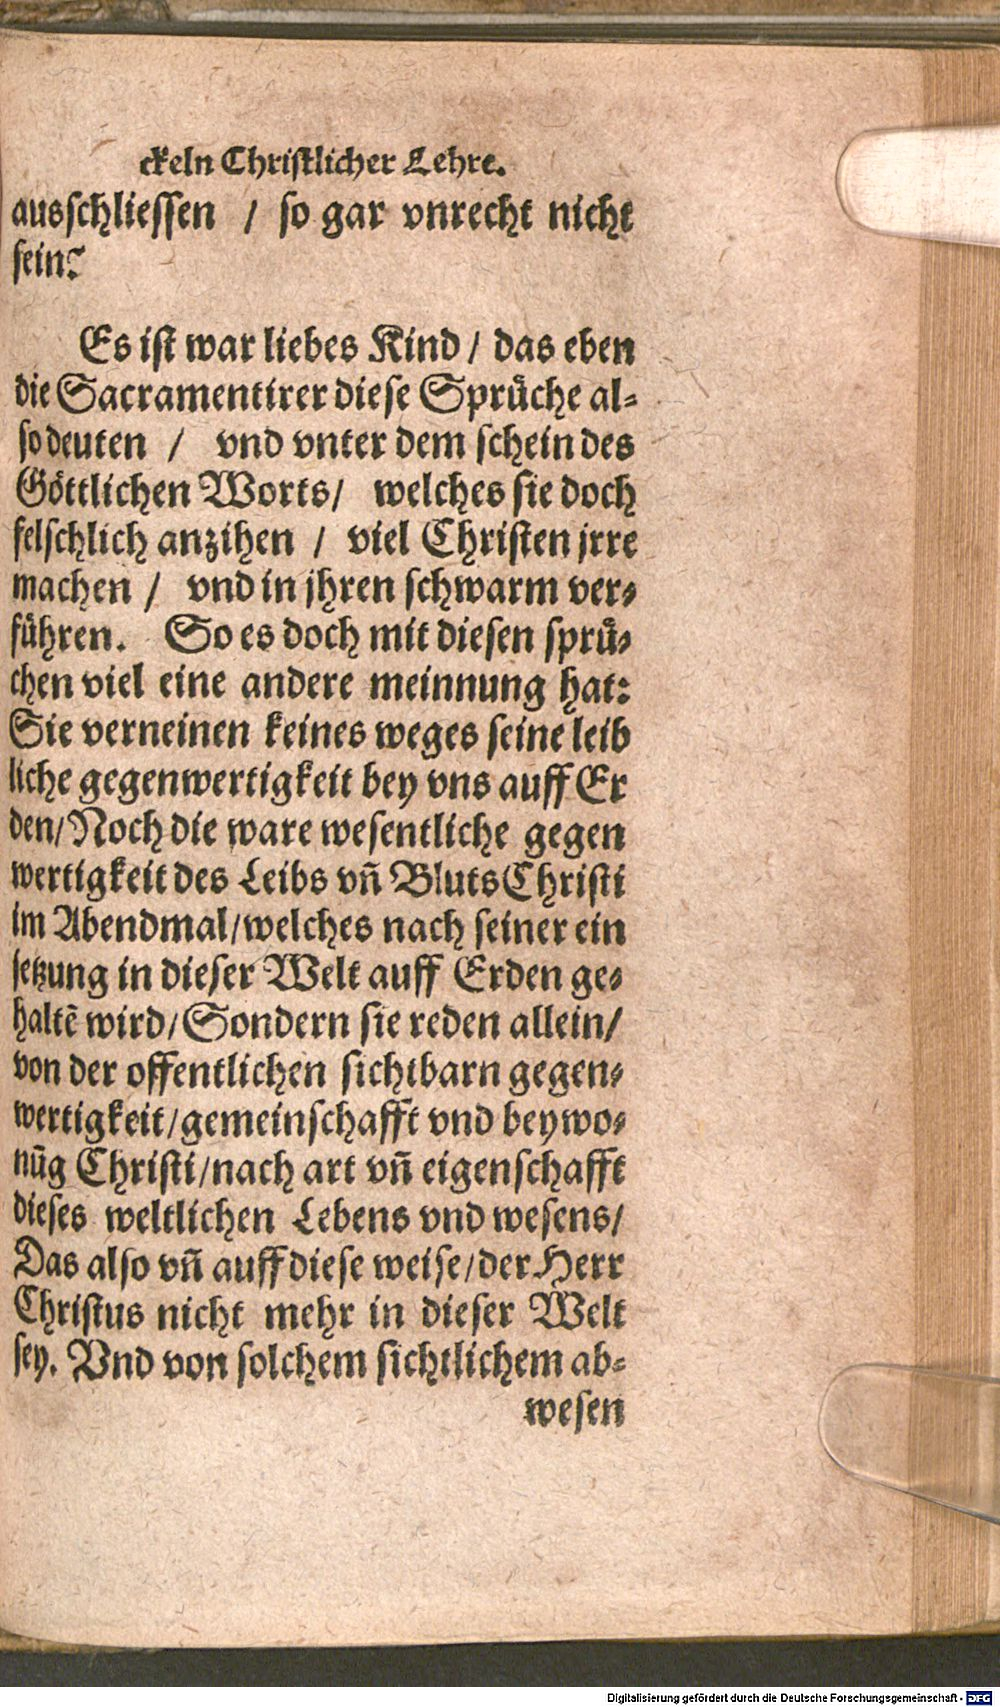 ckeln Christlicher Lehre.
ausschliessen / so gar vnrecht nicht
sein?
Es ist war liebes Kind / das eben
die Sacramentirer diese Sprüche al-
so deuten / vnd vnter dem schein des
Göttlichen Worts / welches sie doch
felschlich anzihen / viel Christen jrre
machen / vnd in jhren schwarm ver-
führen. So es doch mit diesen sprü-
chen viel eine andere meinnung hat:
Sie verneinen keines weges seine leib
liche gegenwertigkeit bey vns auff Er
den / Noch die ware wesentliche gegen
wertigkeit des Leibs vñ Bluts Christi
im Abendmal / welches nach seiner ein
setzung in dieser Welt auff Erden ge-
haltẽ wird / Sondern sie reden allein /
von der offentlichen sichtbarn gegen-
wertigkeit / gemeinschafft vnd beywo-
nũg Christi / nach art vñ eigenschafft
dieses weltlichen Lebens vnd wesens /
Das also vñ auff diese weise / der Herr
Christus nicht mehr in dieser Welt
sey. Vnd von solchem sichtlichem ab-
wesen
Digitalisierung gefördert durch die Deutsche Forschungsgemeinschaft - DFG